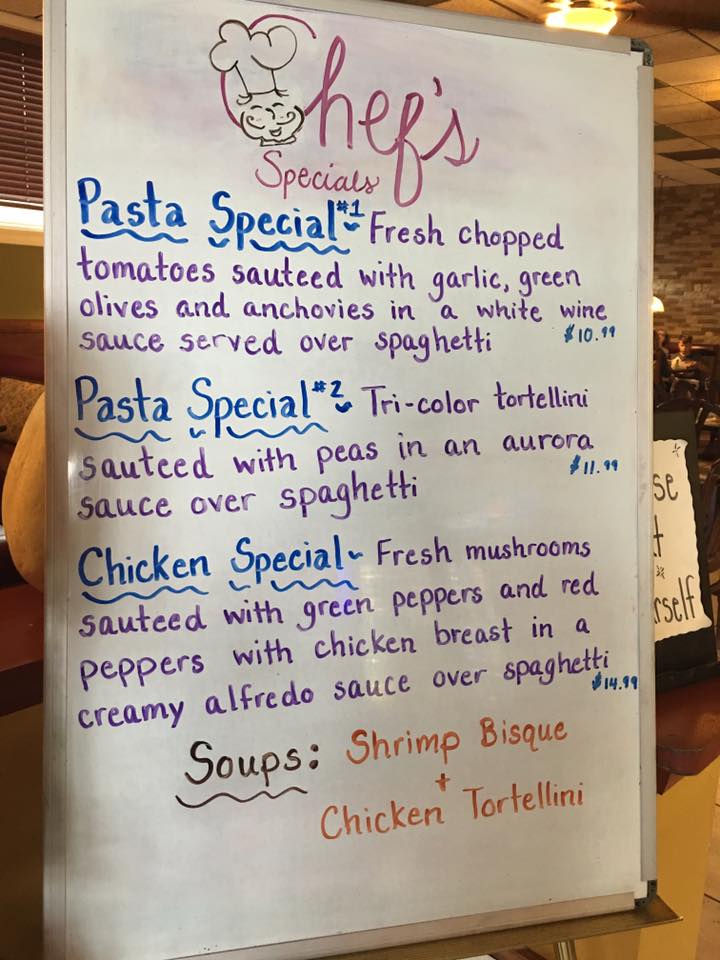 Chef's
Specials
Pasta Special #1 ~ Fresh chopped
tomatoes sauteed with garlic, green
olives and anchovies in a white wine
sauce served over spaghetti $10.99
Pasta Special #2 ~ Tri-color tortellini
sauteed with peas in an aurora
sauce over spaghetti $11.99
Chicken Special ~ Fresh mushrooms
sauteed with green peppers and red
peppers with chicken breast in a
creamy alfredo sauce over spaghetti $14.99
Soups: Shrimp Bisque
+
Chicken Tortellini